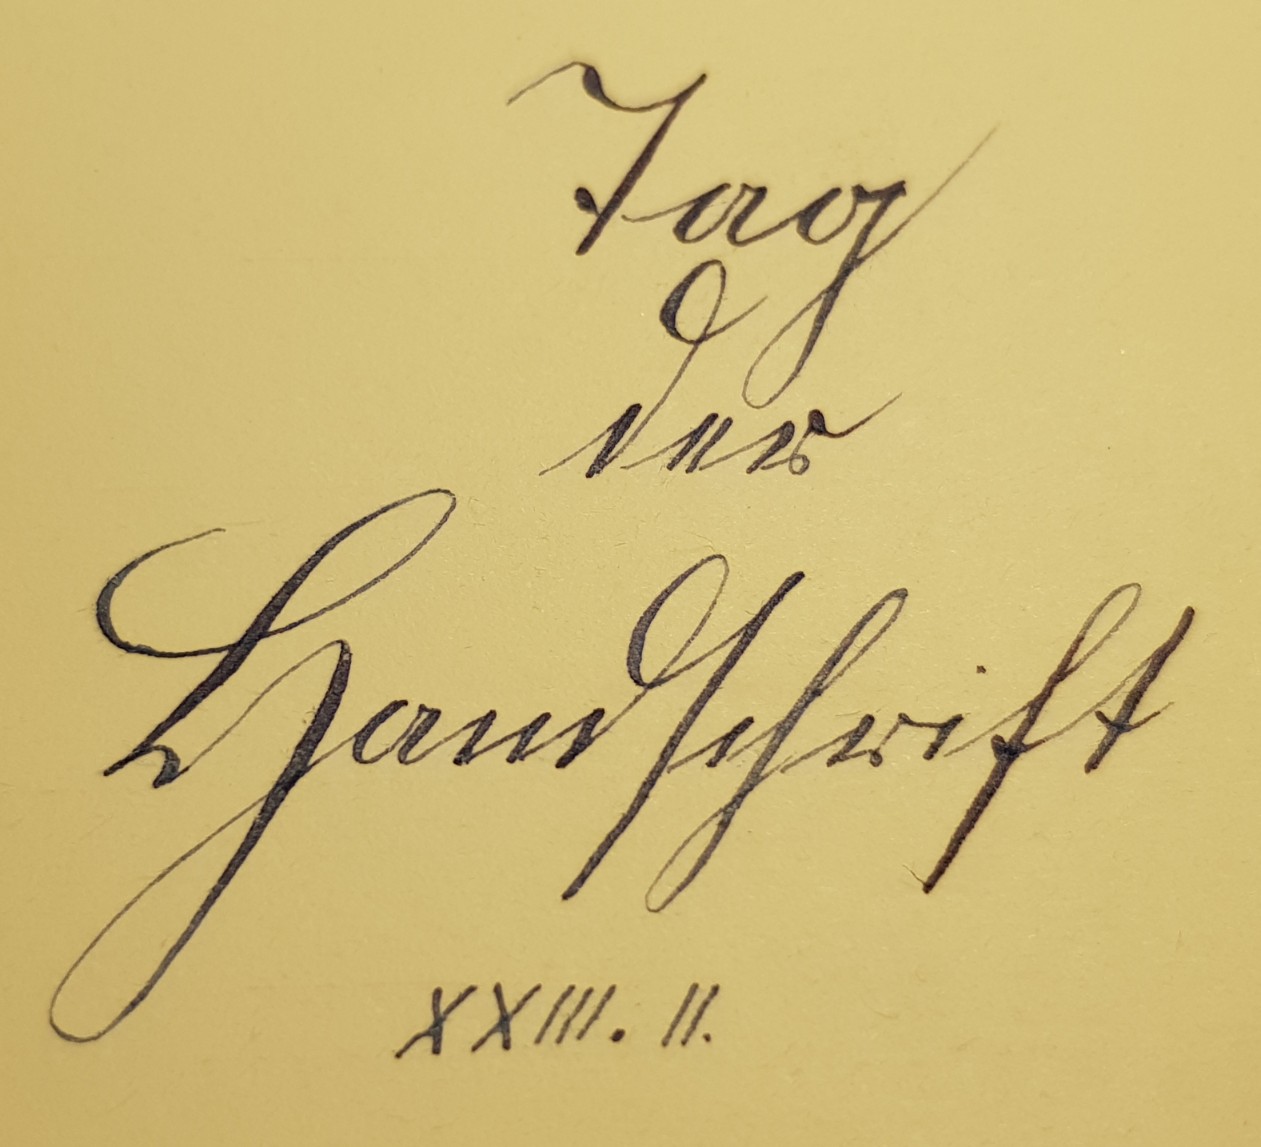 Tag
der
Handschrift
XXIII. II.